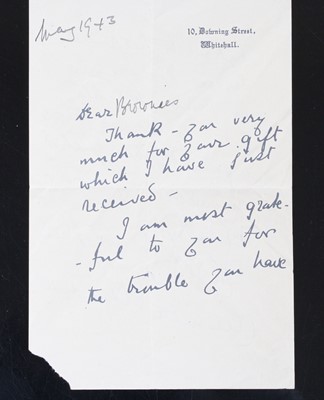 May 1943
10, Downing Street,
Whitehall.
Dear Brownies
Thank - you very
much for your gift
which I have just
received -
I am most grate-
-ful to you for
the trouble you have